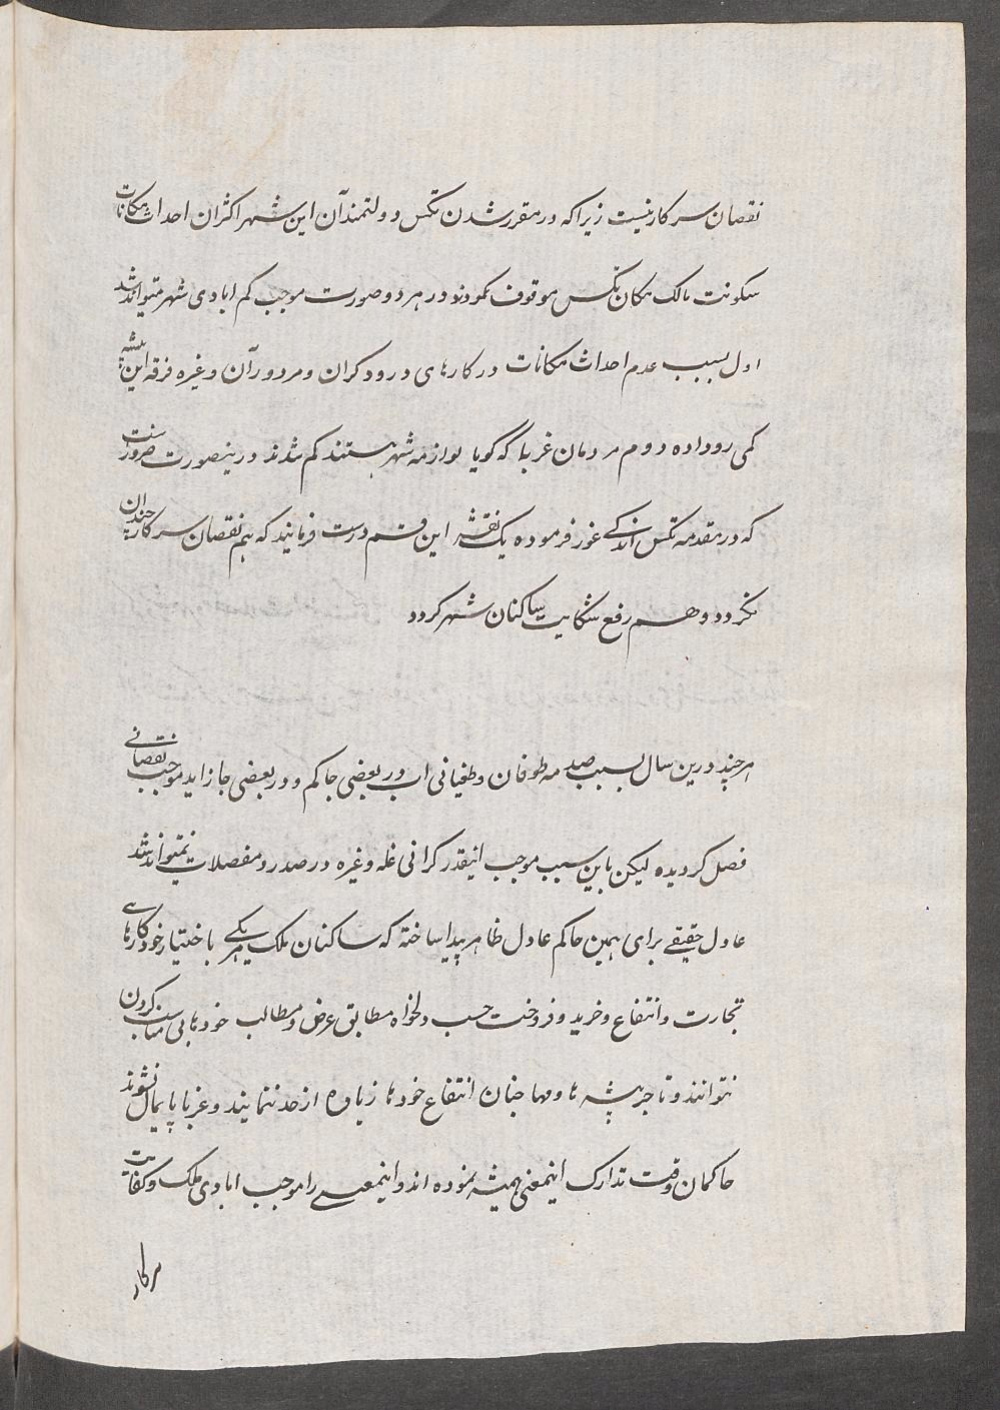 نقصان سرکار نیست زیراکه در مقرر شدن تکس دولتمندآن این شهر اکثران احداث مکانات
سکونت مالک مکان تکس موقوف نمودند در هر دو صورت موجب کم ابادی شهر متیواند شد
اول بسبب عدم احداث مکانات در کارهای درودکران و مردورآن وغیره فرقه این پیشه
کمی روداده دوم مردمان غربا که گویا لوازمه شهر هستند کم شدند درینصورت ضرور است
که در مقدمه تکس اندکے غور فرموده یک نقشه این قسم درست فرمایند که هم نقصان سرکار چندان
نکردد و هم رفع شکایت ساکنان شهر کردد
هرچند درین سال بسبب صدمه طوفان و طغیانی اب در بعضی جا کم و در بعضی جا زاید موجب نقصانے
فصل کردیده لیکن باین سبب موجب اینقدر کرانی غله وغیره در صدر و مفصلات نمیتواند شد
عادل حقیقے برای همین حاکم عادل ظاهر پیدا ساخته که ساکنان ملک هر یکے باختیار خود کارهاے
تجارت و انتفاع و خرید و فروخت حسب دلخواه مطابق غرض و مطالب خودها بی مناسب کردن
نتوانند و تاجر پیشه ها و مهاجنان انتفاع خودها زیاده از حد ننمایند و غربا پایمال نشوند
حاکمان وقت تدارک اینمعنی همیشه نموده اند و اینمعنے را موجب ابادی ملک و کفایت
سرکار